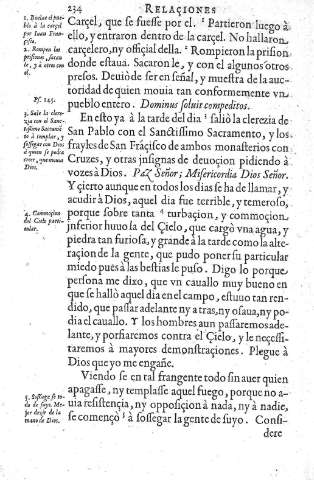 234 RELACIONES
1. Buelue el pue-
blo à la carçel
por Iuan Fran-
çisco.
2. Rompen las
prisiones, sacan-
le, y à otros con
el.
Ps. 145.
3. Sale la clere-
zia con el Sanc-
tissimo Sacramẽ-
to à templar, y
sossegar con Dios
à quien se podia
creer, que mouia
Dios.
4. Commoçion
del Cielo parti-
cular.
5. Sossiego se to-
do de suyo. Me-
jor dezir de la
mano de Dios.
Carçel, que se fuesse por el. ¹ Partieron luego à
ello, y entraron dentro de la carçel. No hallaron
carçelero, ny official della. ² Rompieron la prision
donde estaua. Sacaron le, y con el algunos otros
presos. Deuiò de ser en señal, y muestra de la auc-
toridad de quien mouia tan conformemente vn
pueblo entero. Dominus soluit compeditos.
En esto ya à la tarde del dia ³ saliò la clerezia de
San Pablo con el Sanctissimo Sacramento, y los
frayles de San Frãçisco de ambos monasterios con
Cruzes, y otras insignas de deuoçion pidiendo à
vozes à Dios. Paz Señor; Misericordia Dios Señor.
Y çierto aunque en todos los dias se ha de llamar, y
acudir à Dios, aquel dia fue terrible, y temeroso,
porque sobre tanta ⁴ turbaçion, y commoçion
inferior huuo la del Çielo, que cargò vna agua, y
piedra tan furiosa, y grande à la tarde como la alte-
raçion de la gente, que pudo poner su particular
miedo pues à las bestias le puso. Digo lo porque
persona me dixo, que vn cauallo muy bueno en
que se hallò aquel dia en el campo, estuuo tan ren-
dido, que passar adelante ny a tras, ny osaua, ny po-
dia el cauallo. Y los hombres aun passaremos ade-
lante, y porfiaremos contra el Çielo, y le neçessi-
taremos à mayores demonstraçiones. Plegue à
Dios que yo me engañe.
Viendo se en tal frangente todo sin auer quien
apagasse, ny templasse aquel fuego, porque no a-
uia resistençia, ny opposiçion à nada, ny à nadie,
se començò ⁵ à sossegar la gente de suyo. Consi-
dere